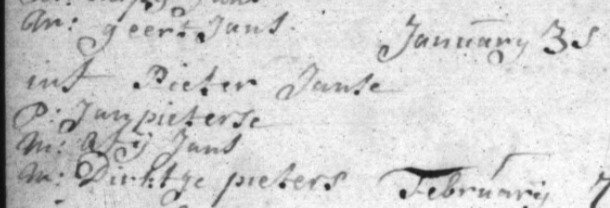 M: geert Jans January 3
int Pieter Janse
P: Jan pieterse
M: Jans
M: Dirktje pieters February 7